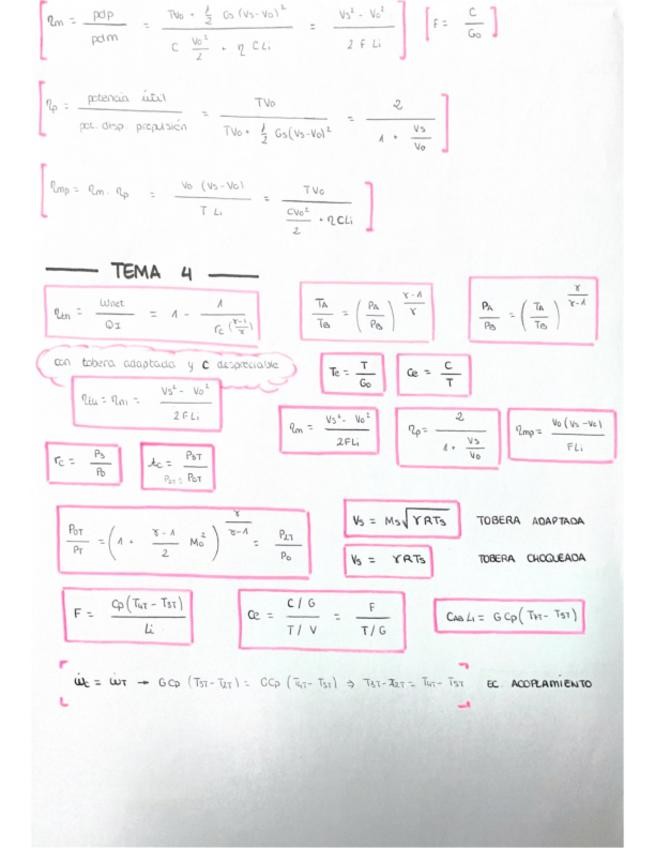 ηm = pdp / pdm = (TVo + 1/2 Gs(Vs-Vo)²) / (C Vo²/2 + η C Li) = (Vs² - Vo²) / (2 F Li) [F = C / Go]
ηp = potencia útil / pot. disp. propulsión = TVo / (TVo + 1/2 Gs(Vs-Vo)²) = 2 / (1 + Vs/Vo)
ηmp = ηm · ηp = Vo (Vs-Vo) / T Li = TVo / (CVo²/2 + η C Li)
TEMA 4
ηth = Wnet / QI = 1 - 1 / rc^(γ-1/γ)
TA / TB = (PA / PB)^(γ-1/γ)
PA / PB = (TA / TB)^(γ/γ-1)
con tobera adaptada y C despreciable
Te = T / Go
Ce = C / T
= ηm = (Vs² - Vo²) / 2FLi
ηm = (Vs² - Vo²) / 2FLi
ηp = 2 / (1 + Vs/Vo)
ηmp = Vo (Vs-Vo) / FLi
rc = P3 / Po
= P3T / P2T
P0T / PT = (1 + (γ-1)/2 Mo²)^(γ/γ-1) = P2T / Po
Vs = Ms√γRTs TOBERA ADAPTADA
Vs = γRTs TOBERA CHOQUEADA
F = Cp(T4T - T3T) / Li
Ce = (C / G) / (T / V) = F / (T/G)
Li = GCp(
ẇc = ẇT → GCp (T3T - T2T) = GCp (T4T - T5T) ⇒ T3T - T2T = T4T - T5T EC. ACOPLAMIENTO